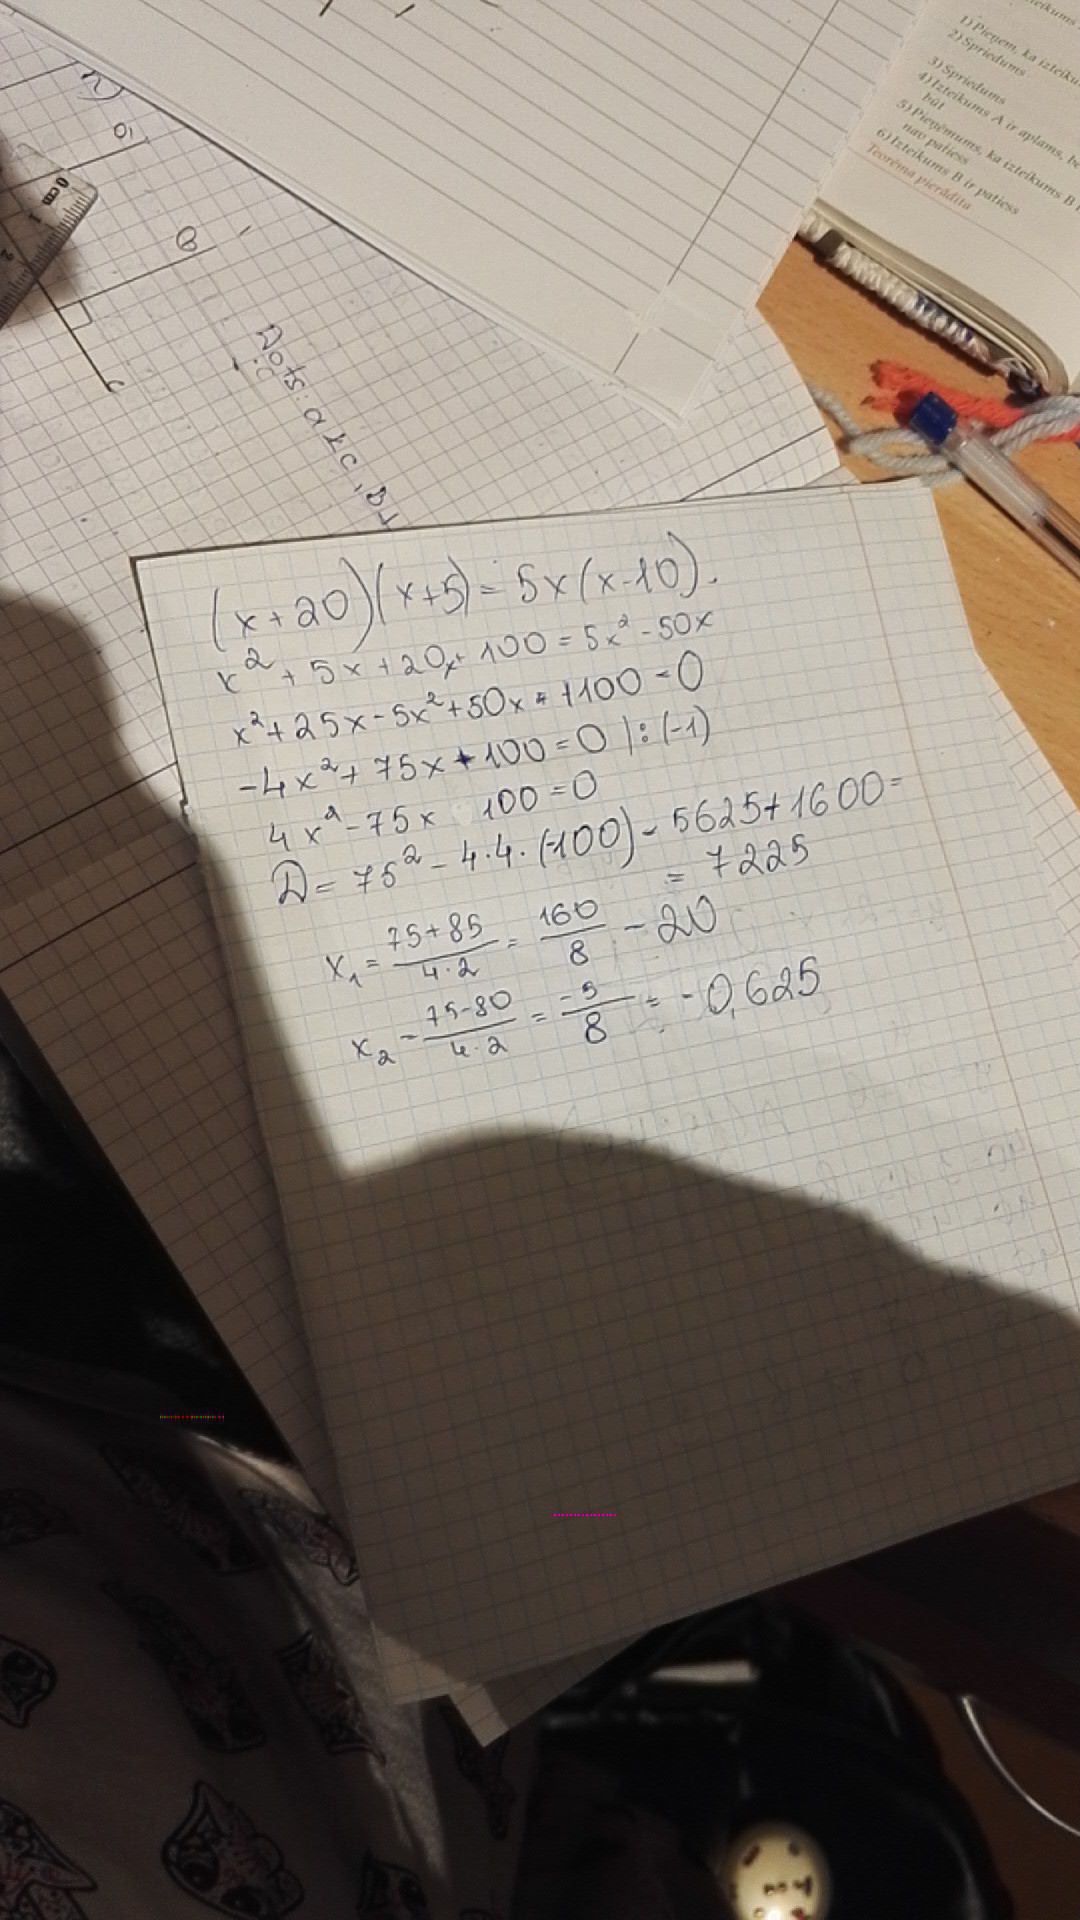 1) Pieņem, ka izteiku
2) Spriedums
3) Spriedums
4) Izteikums A ir aplams, be
būt
5) Pieņēmums, ka izteikums B i
nav patiess
6) Izteikums B ir patiess
Teorēma pierādīta
0 cm 1 2
B
c
Dots: a ⊥ c, B⊥
(x+20)(x+5) = 5x(x-10).
x² + 5x + 20x + 100 = 5x² - 50x
x² + 25x - 5x² + 50x + 100 = 0
-4x² + 75x + 100 = 0 |:(-1)
4x² - 75x 100 = 0
D = 75² - 4·4·(-100) = 5625 + 1600 =
= 7225
x₁ = 75+85 / 4·2 = 160 / 8 - 20
x₂ = 75-80 / 4·2 = -5 / 8 = -0,625